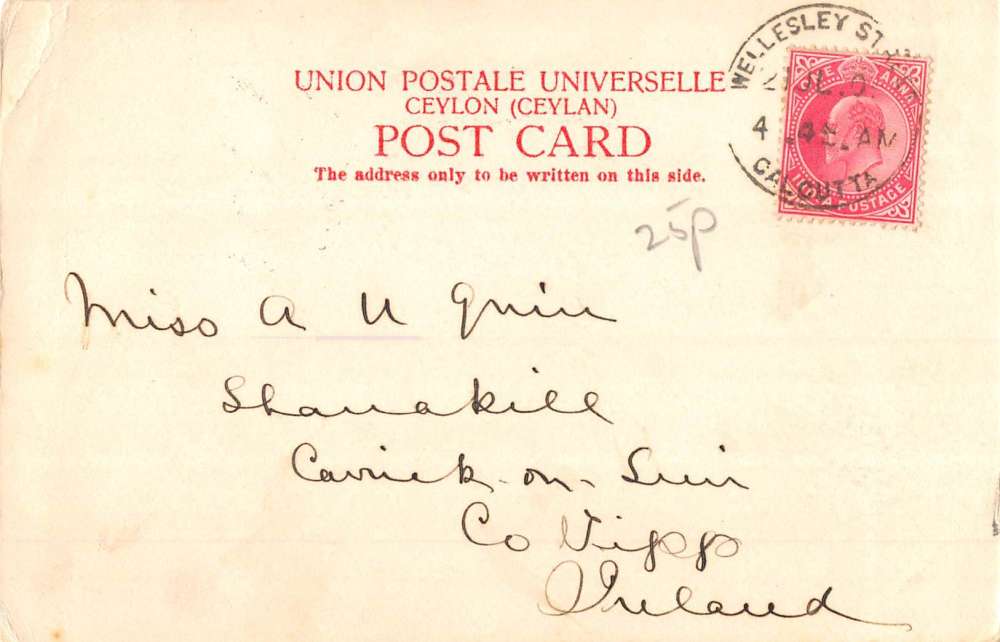 UNION POSTALE UNIVERSELLE
CEYLON (CEYLAN)
POST CARD
The address only to be written on this side.
WELLESLEY ST
4.45 AM
CALCUTTA
ONE ANNA
INDIA POSTAGE
25p
Miss A U Quin
Shanakill
Carrick-on-Suir
Co Tipp
Ireland